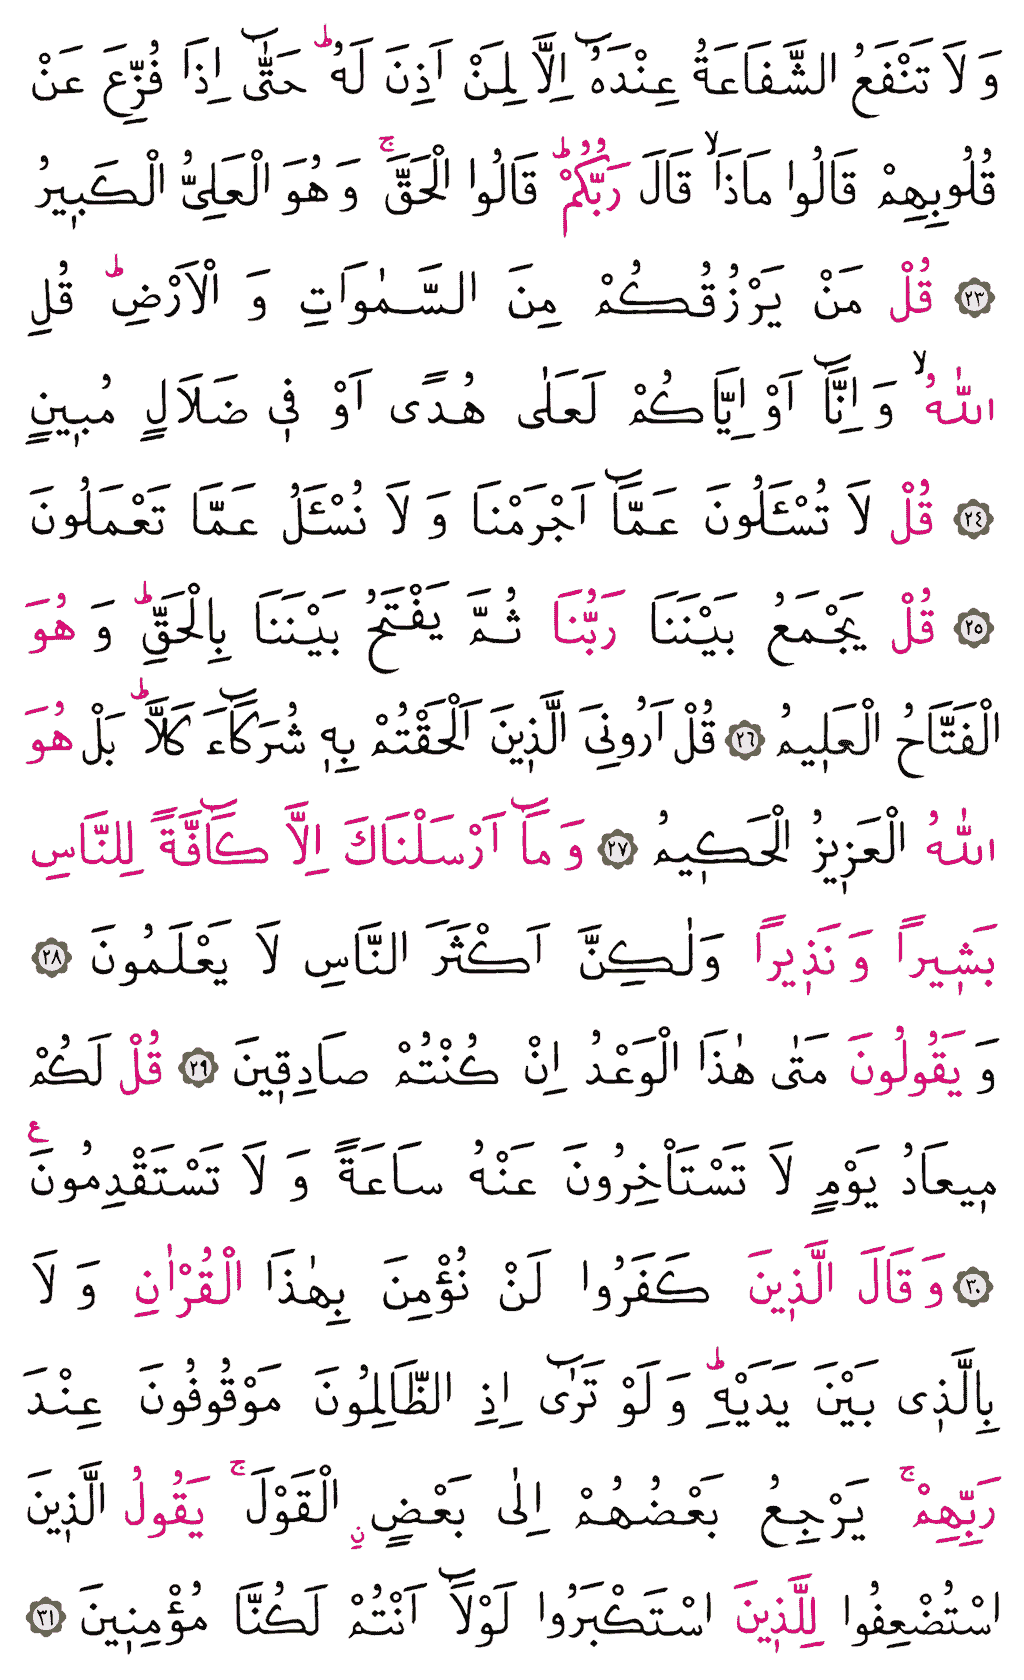 وَ لَا تَنْفَعُ الشَّفَاعَةُ عِنْدَهُٓ اِلَّا لِمَنْ اَذِنَ لَهُ ؕ حَتّٰٓى اِذَا فُزِّعَ عَنْ
قُلُوبِهِمْ قَالُوا مَاذَا ۙ قَالَ رَبُّكُمْ ؕ قَالُوا الْحَقَّ ۚ وَ هُوَ الْعَلِىُّ الْكَبٖيرُ
﴿٢٣﴾ قُلْ مَنْ يَرْزُقُكُمْ مِنَ السَّمٰوَاتِ وَ الْاَرْضِ ؕ قُلِ
اللّٰهُ ۙ وَ اِنَّٓا اَوْ اِيَّاكُمْ لَعَلٰى هُدًى اَوْ فٖى ضَلَالٍ مُبٖينٍ
﴿٢٤﴾ قُلْ لَا تُسْـَٔلُونَ عَمَّٓا اَجْرَمْنَا وَ لَا نُسْـَٔلُ عَمَّا تَعْمَلُونَ
﴿٢٥﴾ قُلْ يَجْمَعُ بَيْنَنَا رَبُّنَا ثُمَّ يَفْتَحُ بَيْنَنَا بِالْحَقِّ ؕ وَ هُوَ
الْفَتَّاحُ الْعَلٖيمُ ﴿٢٦﴾ قُلْ اَرُونِىَ الَّذٖينَ اَلْحَقْتُمْ بِهٖ شُرَكَٓاءَ كَلَّا ؕ بَلْ هُوَ
اللّٰهُ الْعَزٖيزُ الْحَكٖيمُ ﴿٢٧﴾ وَ مَٓا اَرْسَلْنَاكَ اِلَّا كَٓافَّةً لِلنَّاسِ
بَشٖيراً وَ نَذٖيراً وَلٰكِنَّ اَكْثَرَ النَّاسِ لَا يَعْلَمُونَ ﴿٢٨﴾
وَ يَقُولُونَ مَتٰى هٰذَا الْوَعْدُ اِنْ كُنْتُمْ صَادِقٖينَ ﴿٢٩﴾ قُلْ لَكُمْ
مٖيعَادُ يَوْمٍ لَا تَسْتَاْخِرُونَ عَنْهُ سَاعَةً وَ لَا تَسْتَقْدِمُونَ ع
﴿٣٠﴾ وَ قَالَ الَّذٖينَ كَفَرُوا لَنْ نُؤْمِنَ بِهٰذَا الْقُرْاٰنِ وَ لَا
بِالَّذٖى بَيْنَ يَدَيْهِ ؕ وَ لَوْ تَرٰٓى اِذِ الظَّالِمُونَ مَوْقُوفُونَ عِنْدَ
رَبِّهِمْ ۚ يَرْجِعُ بَعْضُهُمْ اِلٰى بَعْضٍ نِ الْقَوْلَ ۚ يَقُولُ الَّذٖينَ
اسْتُضْعِفُوا لِلَّذٖينَ اسْتَكْبَرُوا لَوْلَٓا اَنْتُمْ لَكُنَّا مُؤْمِنٖينَ ﴿٣١﴾